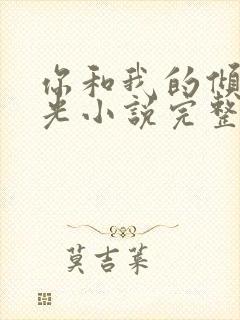 你和我的倾
光小说完整
莫吉莱